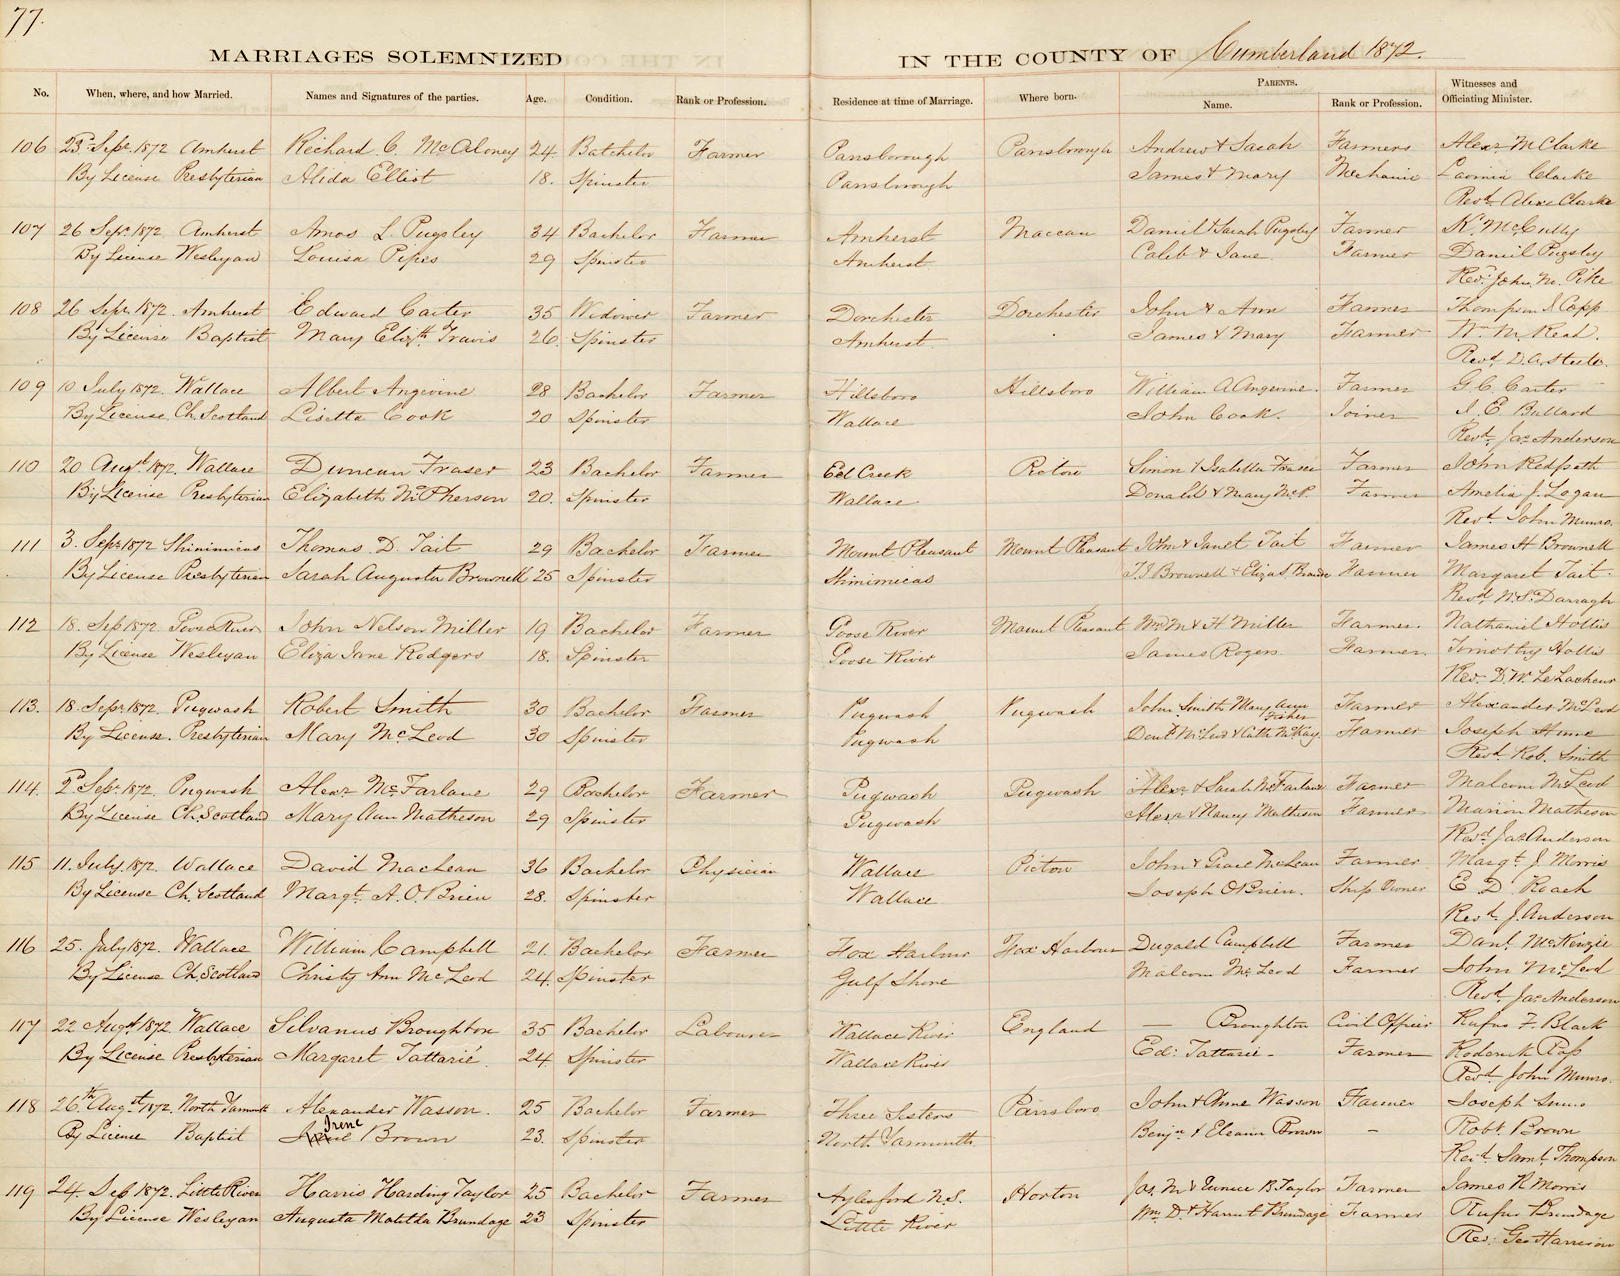 77.
MARRIAGES SOLEMNIZED IN THE COUNTY OF Cumberland 1872.
No. When, where, and how Married. Names and Signatures of the parties. Age. Condition. Rank or Profession. Residence at time of Marriage. Where born. PARENTS. Name. Rank or Profession. Witnesses and Officiating Minister.
106 23d Sept. 1872 Amherst Richard C. McAloney 24 Batchelor Farmer Parrsborough Parrsborough Andrew & Sarah Farmers Alexr McClarke
By License Presbyterian Alida Elliot 18. Spinster Parrsborough James & Mary Mechanic Lavinia Clarke
Revd. Alexr Clarke
107 26 Sepr 1872 Amherst Amos L Pugsley 34 Bachelor Farmer Amherst Maccan Daniel & Sarah Pugsley Farmer K. McCully
By License Wesleyan Louisa Pipes 29 Spinster Amherst Caleb & Jane Farmer Daniel Pugsley
Revd John M. Pike
108 26 Sepr 1872. Amherst Edward Carter 35 Widower Farmer Dorchester Dorchester John & Ann Farmer Thompson S Copp
By License Baptist Mary Elizth Travis 26. Spinster Amherst James & Mary Farmer Wm M. Read.
Revd D. A. Steele.
109 10 July 1872. Wallace Albert Angevine 28 Bachelor Farmer Hillsboro Hillsboro William A Angevine. Farmer G. C. Carter
By License Ch. Scotland Lisetta Cook 20 Spinster Wallace John Cook. Joiner J. E. Bullard
Revd. Jas Anderson
110 20 Augst 1872. Wallace Duncan Fraser 23 Bachelor Farmer Eel Creek Simon & Isabella Fraser Farmer John Redpath
By License Presbyterian Elizabeth McPherson 20. Spinster Wallace Donald & Mary McP. Farmer Amelia J. Logan
Revd. John Munro.
111 3. Sepr 1872 Shinimicas Thomas D. Tait 29 Bachelor Farmer Mount Pleasant Mount Pleasant John & Janet Tait Farmer James H Brownell
By License Presbyterian Sarah Augusta Brownell 25 Spinster Shinimicas Brownell & Eliza Farmer Margaret Tait.
Revd. W. S. Darragh
112 18. Sep 1872 Goose River John Nelson Miller 19 Bachelor Farmer Goose River Mount Pleasant Wm M & H Miller Farmer. Nathaniel Hollis
By License Wesleyan Eliza Jane Rodgers 18. Spinster Goose River James Rogers Farmer. Timothy Hollis
Rev. D. W. LeLacheur
113. 18. Sepr 1872. Pugwash Robert Smith 30 Bachelor Farmer Pugwash Pugwash John Smith Mary Ann Fisher Farmer Alexander McLeod
By License. Presbyterian Mary McLeod 30 Spinster Pugwash McLeod & Cath McKay Farmer Joseph Hume
Revd. Rob. Smith
114. 2d Sepr. 1872. Pugwash Alexr McFarlane 29 Bachelor Farmer Pugwash Pugwash Alexr & Sarah McFarlane Farmer Malcom McLeod
By License Ch. Scotland Mary Ann Matheson 29 Spinster Pugwash Alexr & Nancy Matheson Farmer Marion Matheson
Revd Jas Anderson
115 11. July 1872. Wallace David Maclean 36 Bachelor Physician Wallace Pictou John & Grace McLean Farmer Margt. J. Morris
By License Ch. Scotland Margt. A. O'Brien 28. Spinster Wallace Joseph O'Brien. Ship Owner E. D. Roach
Revd J. Anderson
116 25. July 1872. Wallace William Campbell 21. Bachelor Farmer Fox Harbour Fox Harbour Dugald Campbell Farmer Danl. McKenzie
By License Ch. Scotland Christy Ann McLeod 24. Spinster Gulf Shore Malcom McLeod Farmer John McLeod
Revd. Jas Anderson
117 22 Augst 1872 Wallace Silvanus Broughton 35 Bachelor Labourer Wallace River England — Broughton Civil Officer Rufus F. Black
By License Presbyterian Margaret Tattarie. 24. Spinster Wallace River Ed: Tattarie - Farmer Roderick Ross
Revd John Munro.
118 26th Augst 1872. North Yarmouth Alexander Wasson. 25 Bachelor Farmer Three Sisters Parrsboro John & Anne Wasson Farmer Joseph
By License Baptist Irene Brown 23. Spinster North Yarmouth Benjn & Eleanor Brown — Robt. Brown
Revd. Saml. Thompson
119 24. Sep 1872. Little River Harris Harding Taylor 25 Bachelor Farmer Aylesford N.S. Horton Jas. M & Eunice B. Taylor Farmer James R Morris
By License Wesleyan Augusta Matilda Brundage 23 Spinster Little River Wm D. & Harriet Brundage Farmer Rufus Brundage
Rev. Geo Harrison